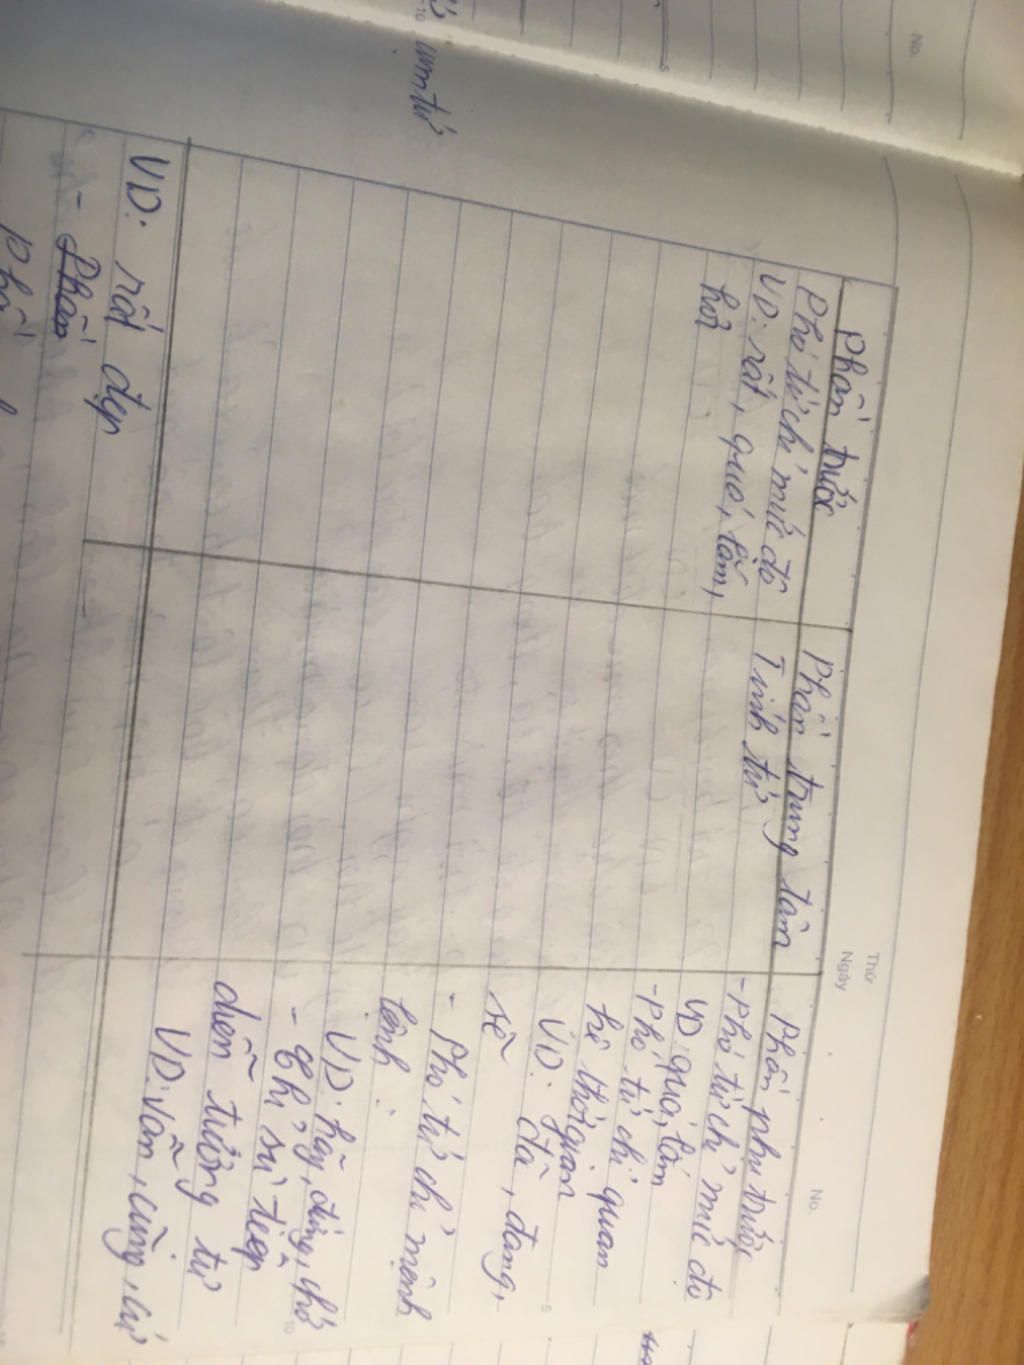 No.
Thứ
Ngày
No.
Phần trước
Phần trung tâm
Phần phụ trước
Phó từ chỉ mức độ
VD: rất, quá, lắm,
hơi
Tính từ
-Phó từ chỉ mức độ
VD quá, lắm
-Phó từ chỉ quan
hệ thời gian
VD: đã, đang,
sẽ
- Phó từ chỉ mệnh
lệnh :
VD: hãy, đừng, chớ
- Chỉ sự tiếp
diễn tương tự
VD: vẫn, cũng, cứ
VD: rất đẹp
- Phần
phần